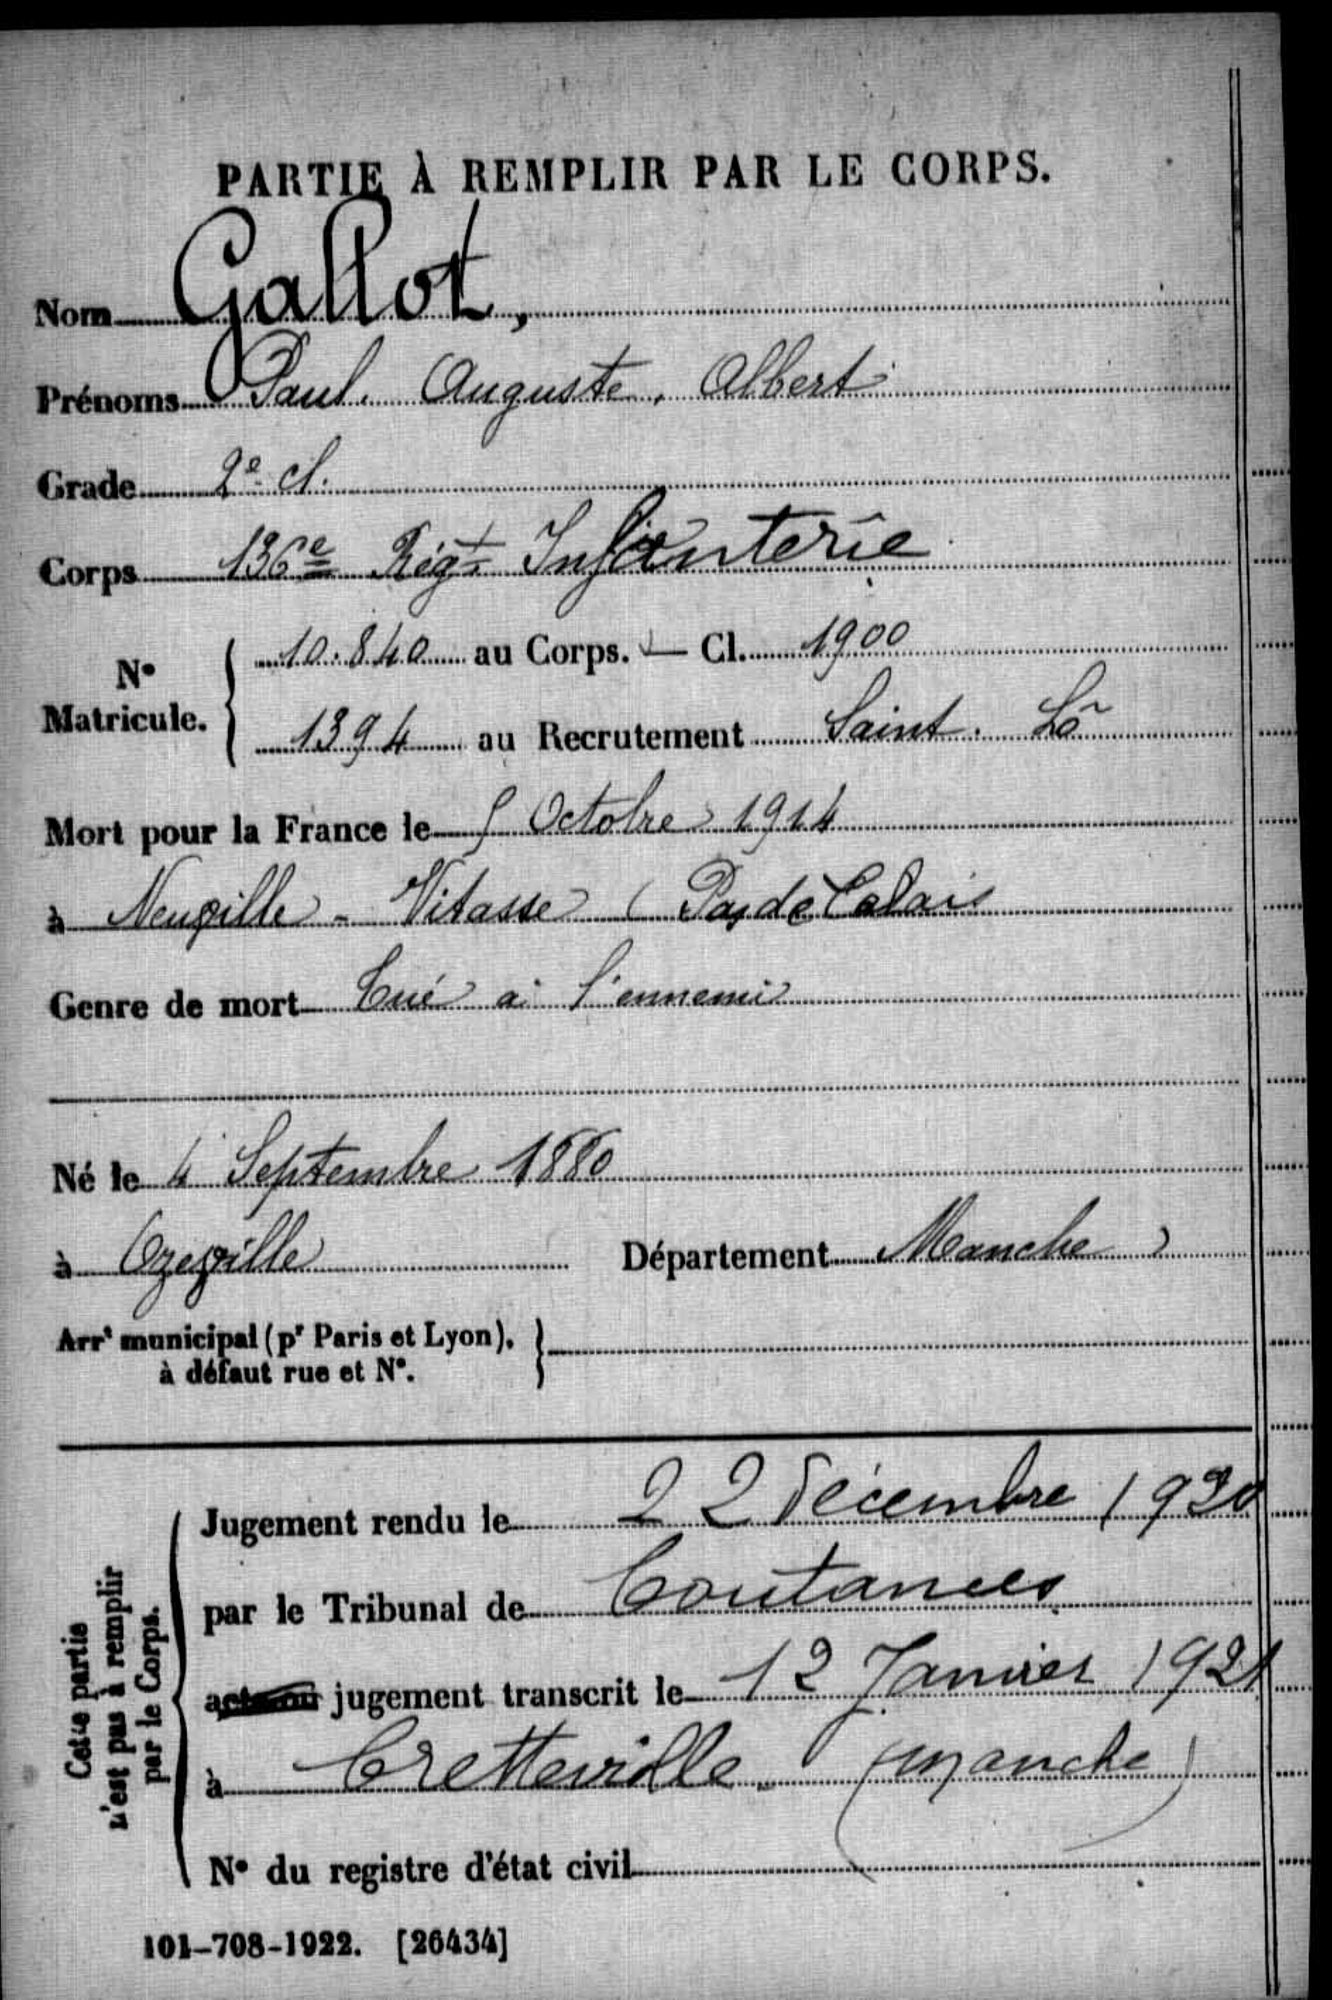 PARTIE À REMPLIR PAR LE CORPS.
Nom Gallot,
Prénoms Paul. Auguste. Albert
Grade 2e cl.
Corps 136e Régt Infanterie
No Matricule. { 10.840 au Corps. — Cl. 1900
1394 au Recrutement Saint. Lô
Mort pour la France le 5 Octobre 1914
à Neuville - Vitasse (Pas de Calais
Genre de mort Tué à l'ennemi
Né le 4 Septembre 1880
à Ozeville Département Manche
Arrt municipal (pr Paris et Lyon), }
à défaut rue et No.
Cette partie
n'est pas à remplir
par le Corps.
Jugement rendu le 22 Décembre 1920
par le Tribunal de Coutances
acte ou jugement transcrit le 12 Janvier 1921
à Cretteville (Manche)
No du registre d'état civil
101-708-1922. [26434]